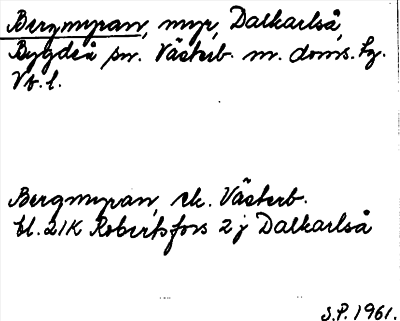 Bergmyran, myr, Dalkarlså,
Bygdeå sn. Västerb. n. doms. tg.
Vb. l.
Bergmyran, ek. Västerb.
bl. 21K Robertsfors 2 j Dalkarlså
S.P. 1961.